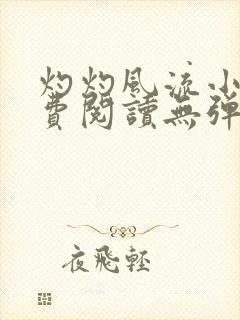 灼灼風流小
費閱讀無彈
夜飛輕